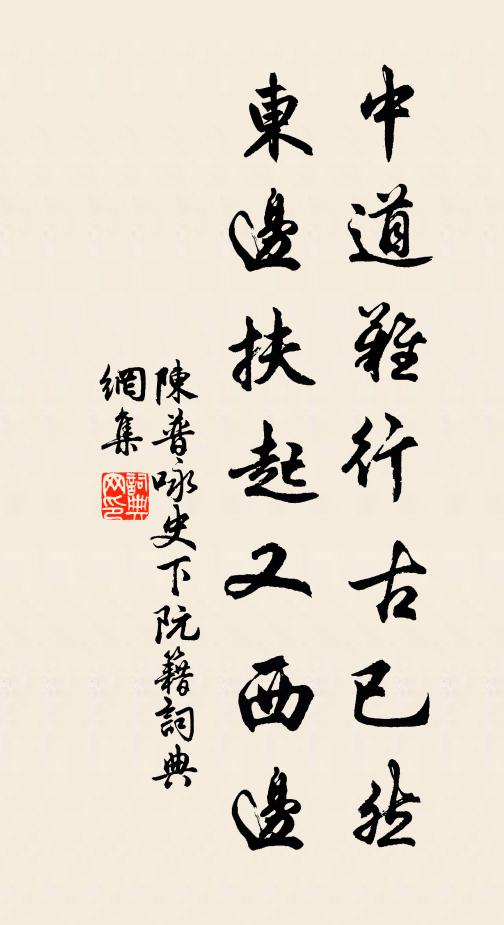 中道難行古已然
東邊扶起又西邊
陳普咏史下阮籍詞典
網集
詞典
网印